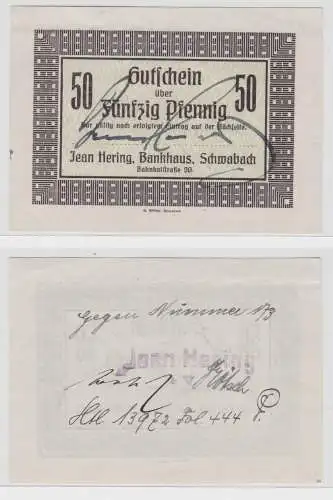 50 Gutschein 50
über
Fünfzig Pfennig
Nur gültig nach erfolgtem Eintrag auf der Rückseite.
Jean Hering, Bankhaus, Schwabach
Bahnhofstraße 20
gegen Nummer 173
Jean Hering
Htl 13972 Fol 444